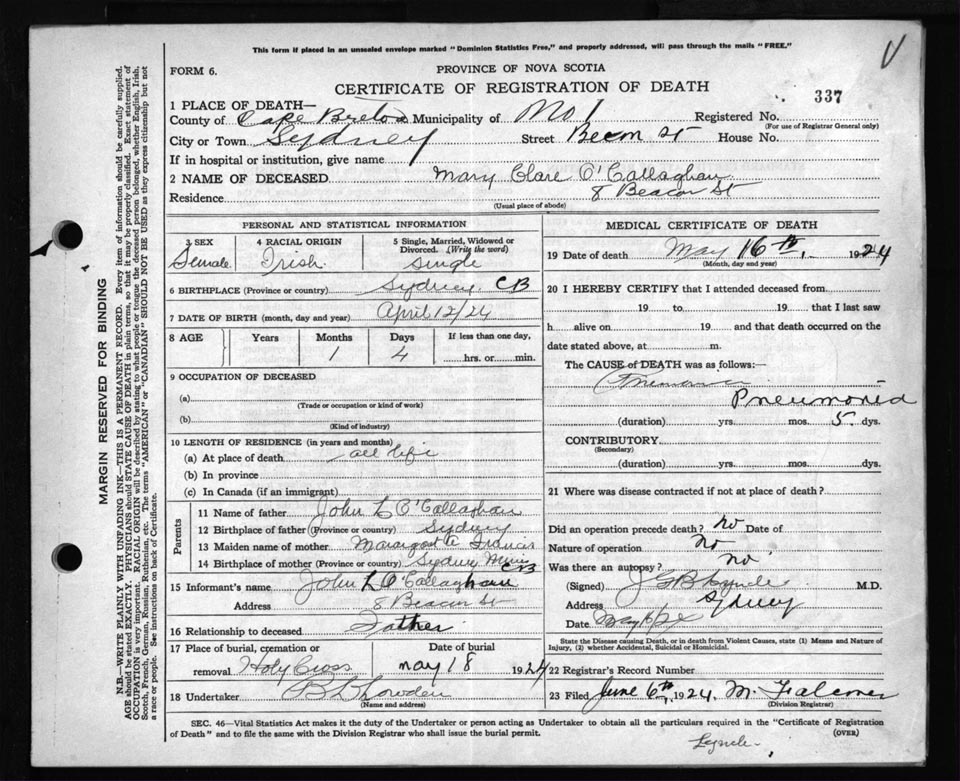 This form if placed in an unsealed envelope marked "Dominion Statistics Free," and properly addressed, will pass through the mails "FREE."
FORM 6.
PROVINCE OF NOVA SCOTIA
CERTIFICATE OF REGISTRATION OF DEATH
337
1 PLACE OF DEATH—
County of Cape Breton Municipality of No 1 Registered No.
(For use of Registrar General only)
City or Town Sydney Street Becon St House No.
If in hospital or institution, give name
2 NAME OF DECEASED Mary Clare O'Callaghan
Residence 8 Beacon St
(Usual place of abode)
PERSONAL AND STATISTICAL INFORMATION
3 SEX Female
4 RACIAL ORIGIN Irish
5 Single, Married, Widowed or Divorced. (Write the word) Single
6 BIRTHPLACE (Province or country) Sydney CB
7 DATE OF BIRTH (month, day and year) April 12/24
8 AGE Years Months Days If less than one day,
1 4 hrs. or min.
9 OCCUPATION OF DECEASED
(a)
(Trade or occupation or kind of work)
(b)
(Kind of industry)
10 LENGTH OF RESIDENCE (in years and months)
(a) At place of death all life
(b) In province
(c) In Canada (if an immigrant)
Parents
11 Name of father John L O'Callaghan
12 Birthplace of father (Province or country) Sydney
13 Maiden name of mother Margaret A Francis
14 Birthplace of mother (Province or country) Sydney Mines CB
15 Informant's name John L O'Callaghan
Address 8 Beacon St
16 Relationship to deceased Father
17 Place of burial, cremation or removal Holy Cross
Date of burial May 18 1924
18 Undertaker
(Name and address)
MEDICAL CERTIFICATE OF DEATH
19 Date of death May 16th, 1924
(Month, day and year)
20 I HEREBY CERTIFY that I attended deceased from
19 to 19 that I last saw
h alive on 19 and that death occurred on the
date stated above, at m.
The CAUSE of DEATH was as follows:
Pneumonia
(duration) yrs. mos. 5 dys.
CONTRIBUTORY
(Secondary)
(duration) yrs. mos. dys.
21 Where was disease contracted if not at place of death?
Did an operation precede death? no Date of
Nature of operation no
Was there an autopsy? no
(Signed) J G B Lynch M.D.
Address Sydney
Date May
State the Disease causing Death, or in death from Violent Causes, state (1) Means and Nature of Injury, (2) whether Accidental, Suicidal or Homicidal.
22 Registrar's Record Number
23 Filed June 6th, 1924 M. Falconer
(Division Registrar)
SEC. 46—Vital Statistics Act makes it the duty of the Undertaker or person acting as Undertaker to obtain all the particulars required in the "Certificate of Registration
of Death" and to file the same with the Division Registrar who shall issue the burial permit.
(OVER)
Lynch
MARGIN RESERVED FOR BINDING
N.B.—WRITE PLAINLY WITH UNFADING INK—THIS IS A PERMANENT RECORD. Every item of information should be carefully supplied.
AGE should be stated EXACTLY. PHYSICIANS should STATE CAUSE OF DEATH in plain terms, so that it may be properly classified. Exact statement of
OCCUPATION is very important. RACIAL ORIGIN will be described by stating to what people or tongue the deceased person belonged, whether English, Irish,
Scotch, French, German, Russian, Ruthenian, etc. The terms "AMERICAN" or "CANADIAN" SHOULD NOT BE USED as they express citizenship but not
a race or people. See instructions on back of Certificate.